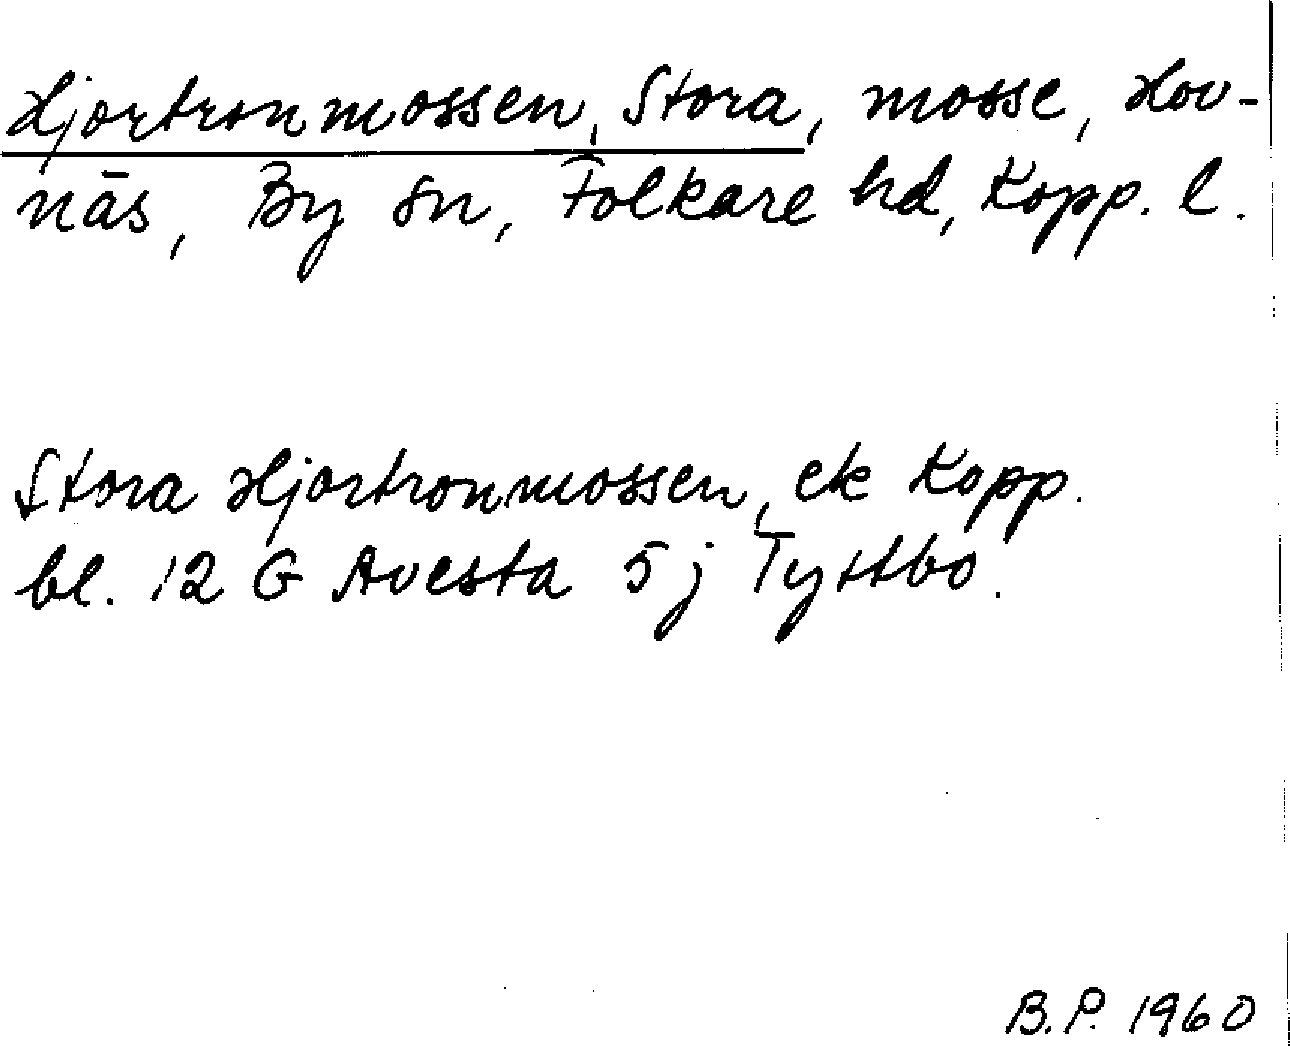 Hjortronmossen, Stora, mosse, Hov-
näs, By sn, Folkare hd, Kopp. l.
Stora Hjortronmossen, ek Kopp.
bl. 12 G Avesta 5 j Tyttbo.
B.P. 1960